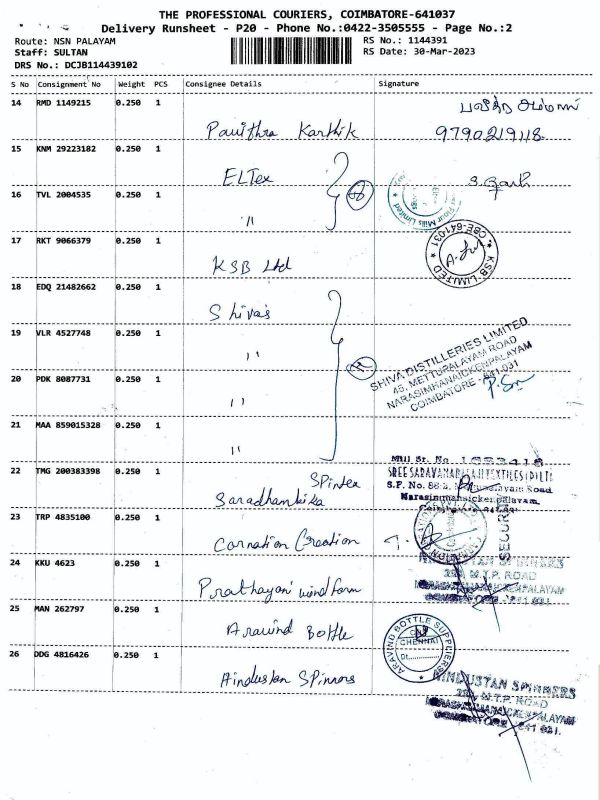 THE PROFESSIONAL COURIERS, COIMBATORE-641037
Delivery Runsheet - P20 - Phone No.:0422-3505555 - Page No.:2
Route: NSN PALAYAM
Staff: SULTAN
DRS No.: DCJB114439102
RS No.: 1144391
RS Date: 30-Mar-2023
S No Consignment No Weight PCS Consignee Details Signature
14 RMD 1149215 0.250 1
Pavithra Karthik 9790219118
15 KNM 29223182 0.250 1
ELTex
16 TVL 2004535 0.250 1
"
Flour Mills Limited
17 RKT 9066379 0.250 1
KSB Ltd
KSB LIMITED CBE-641-031
18 EDQ 21482662 0.250 1
Shiva's
19 VLR 4527748 0.250 1
"
20 PDK 8087731 0.250 1
"
SHIVA DISTILLERIES LIMITED
45, METTUPALAYAM ROAD
NARASIMHANAICKENPALAYAM
COIMBATORE - 641-031
21 MAA 859015328 0.250 1
"
22 TMG 200383398 0.250 1
Saradhambika Spintex
Mill Sr. No
Narasimhanaickenpalayam.
23 TRP 4835100 0.250 1
Carnation Creation
SECURI
24 KKU 4623 0.250 1
Prathayani windfarm
HINDUSTAN SPINNERS
M.T.P. ROAD
NARASIMHANAICKENPALAYAM
COIMBATORE - 641 031.
25 MAN 262797 0.250 1
Aravind Bottle
ARAVIND BOTTLE SUPPLIERS
CHENNAI
Dt.
26 DDG 4816426 0.250 1
Hindustan Spinners
HINDUSTAN SPINNERS
M.T.P. ROAD
NARASIMHANAICKENPALAYAM
COIMBATORE - 641 031.